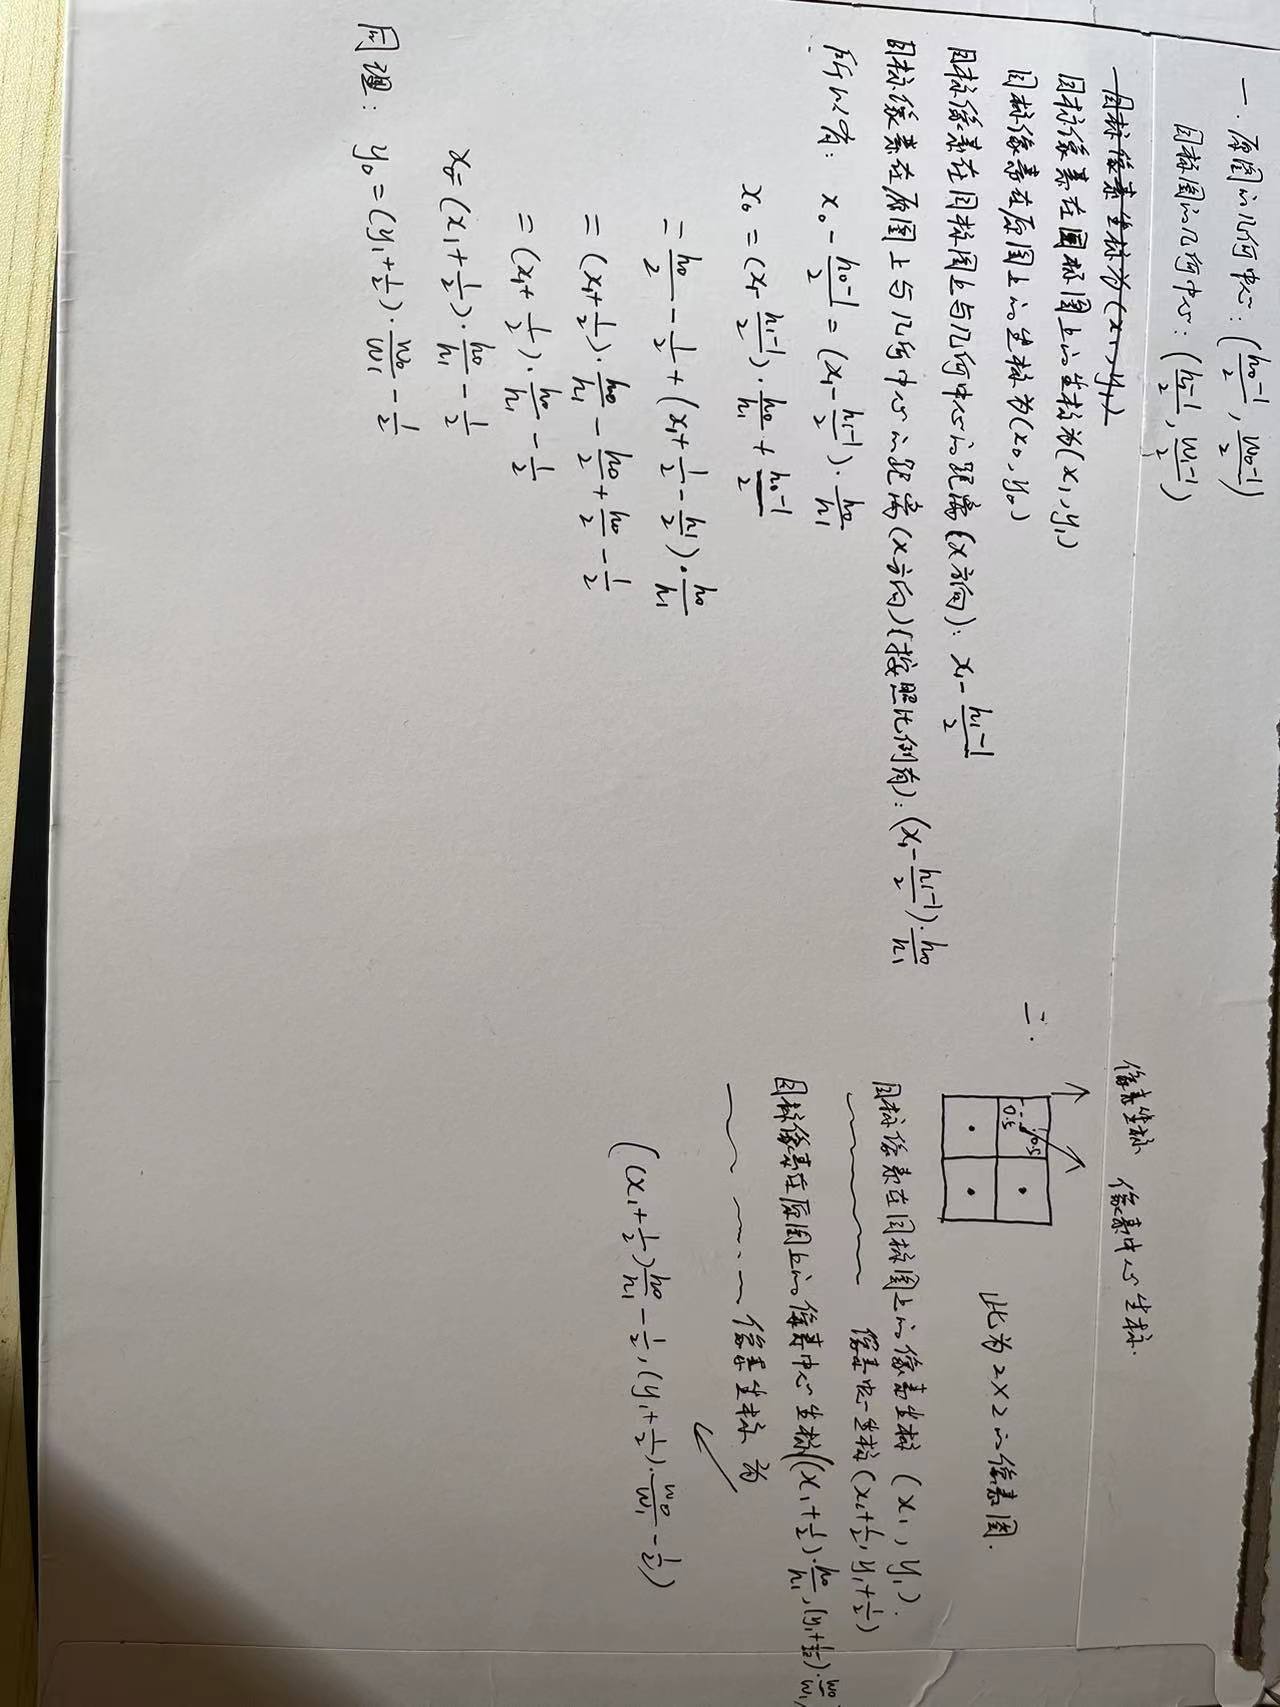 一. 原图的几何中心: (\frac{h_0-1}{2}, \frac{w_0-1}{2})
目标图的几何中心: (\frac{h_1-1}{2}, \frac{w_1-1}{2})
目标像素坐标为(x_1, y_1)
目标像素在目标图上的坐标为(x_1, y_1)
目标像素在原图上的坐标为(x_0, y_0)
目标像素在目标图上与几何中心的距离(x方向): x_1-\frac{h_1-1}{2}
目标像素在原图上与几何中心的距离(x方向)(按照比例有): (x_1-\frac{h_1-1}{2})·\frac{h_0}{h_1}
所以有: x_0-\frac{h_0-1}{2}=(x_1-\frac{h_1-1}{2})·\frac{h_0}{h_1}
x_0=(x_1-\frac{h_1-1}{2})·\frac{h_0}{h_1}+\frac{h_0-1}{2}
=\frac{h_0}{2}-\frac{1}{2}+(x_1+\frac{1}{2}-\frac{h_1}{2})·\frac{h_0}{h_1}
=(x_1+\frac{1}{2})·\frac{h_0}{h_1}-\frac{h_0}{2}+\frac{h_0}{2}-\frac{1}{2}
=(x_1+\frac{1}{2})·\frac{h_0}{h_1}-\frac{1}{2}
x_0=(x_1+\frac{1}{2})·\frac{h_0}{h_1}-\frac{1}{2}
同理: y_0=(y_1+\frac{1}{2})·\frac{w_0}{w_1}-\frac{1}{2}
二.
像素坐标 像素中心坐标.
0.5
0.5
此为2×2的像素图.
目标像素在目标图上的像素坐标 (x_1, y_1).
像素中心坐标(x_1+\frac{1}{2}, y_1+\frac{1}{2})
目标像素在原图上的像素中心坐标((x_1+\frac{1}{2})·\frac{h_0}{h_1}, (y_1+\frac{1}{2})·\frac{w_0}{w_1}
像素坐标为
((x_1+\frac{1}{2})\frac{h_0}{h_1}-\frac{1}{2}, (y_1+\frac{1}{2})·\frac{w_0}{w_1}-\frac{1}{2})